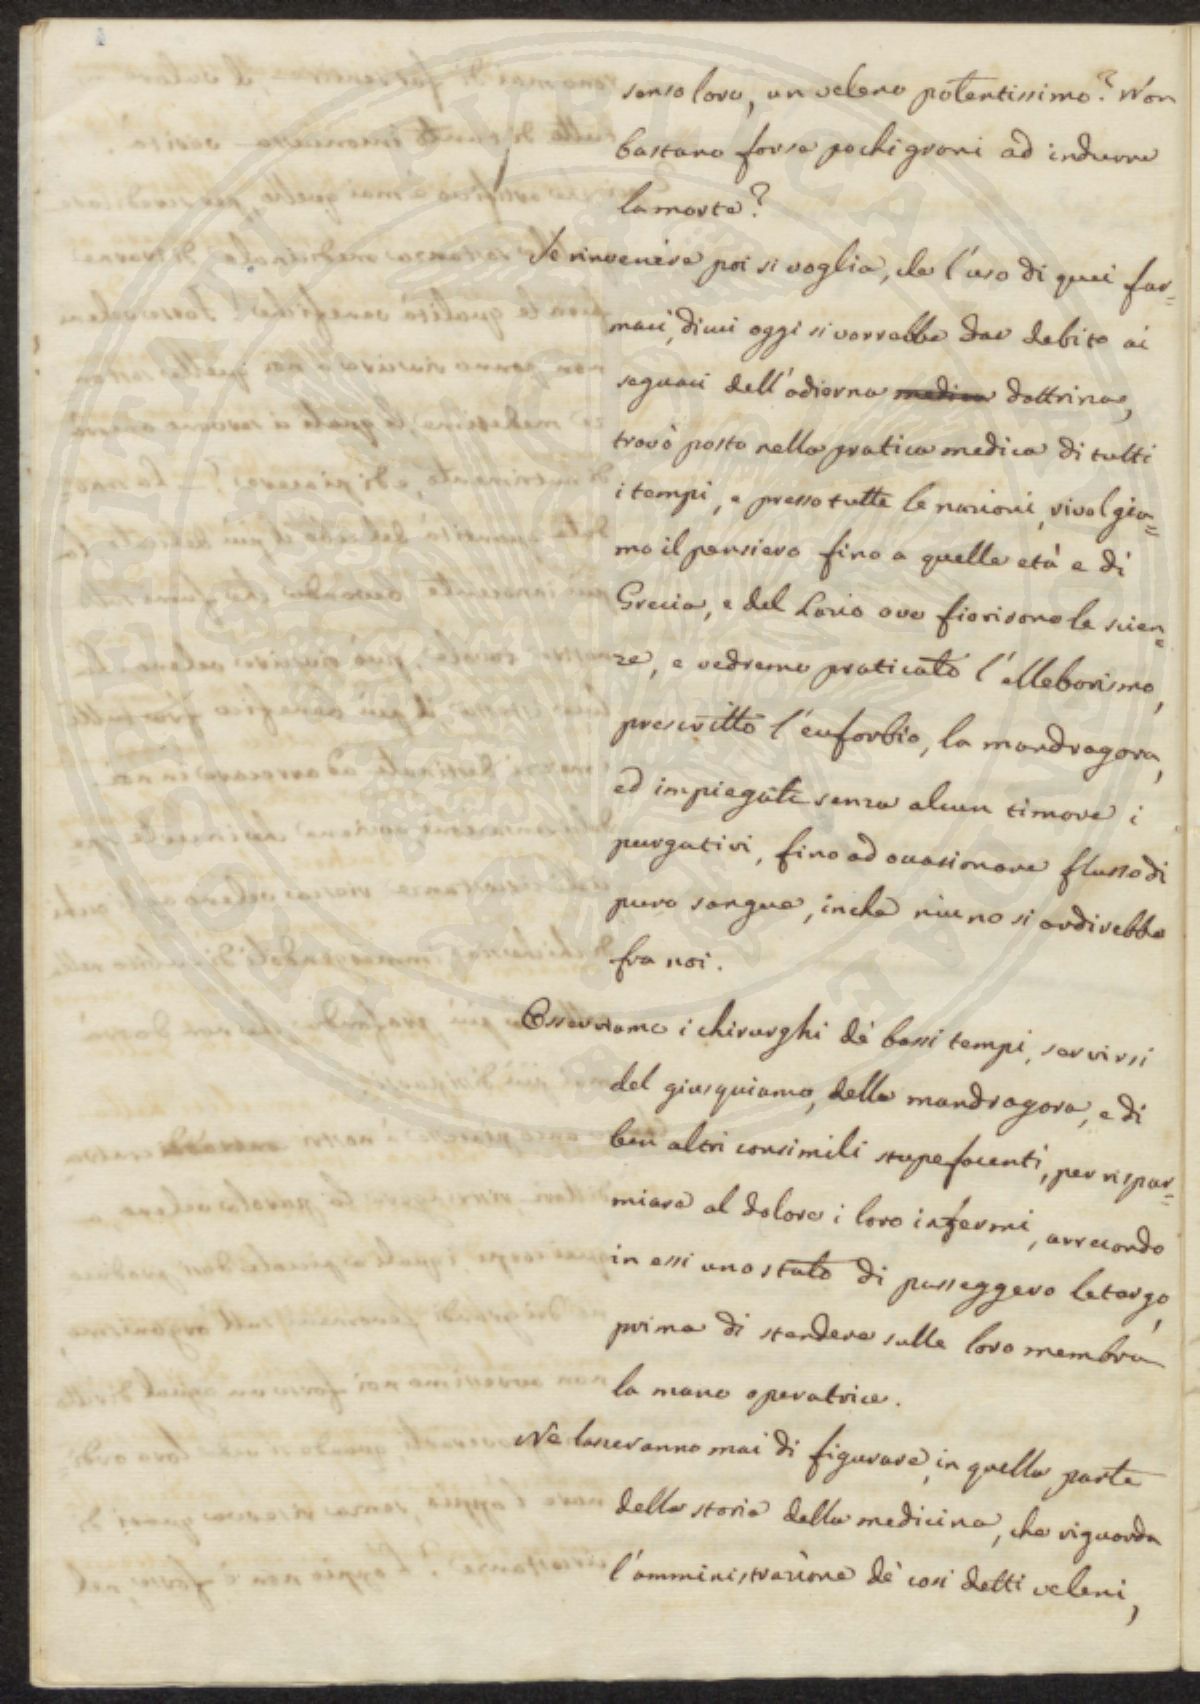 senso loro, un veleno potentissimo? Non
bastano forse pochi grani ad indurre
la morte?
Se rinvenire poi si voglia, che l'uso di quei far=
maci, di cui oggi si vorrebbe dar debito ai
seguaci dell'odierna medica dottrina,
trovò posto nella pratica medica di tutti
i tempi, e presso tutte le nazioni, rivolgia=
mo il pensiero fino a quelle età e di
Grecia, e del Lazio ove fiorirono le scien=
ze, e vedremo praticato l'elleborismo,
prescritto l'euforbio, la mandragora,
ed impiegati senza alcun timore i
purgativi, fino ad occasionare flusso di
puro sangue, in che niuno si ardirebbe
fra noi.
Osserviamo i chirurghi de' bassi tempi, servirsi
del giusquiamo, della mandragora, e di
ben altri consimili stupefacenti, per rispar=
miare al dolore i loro infermi, arrecando
in essi uno stato di passeggero letargo,
prima di stendere sulle loro membra
la mano operatrice.
Ne lasceranno mai di figurare, in quella parte
della storia della medicina, che riguarda
l'amministrazione de' così detti veleni,